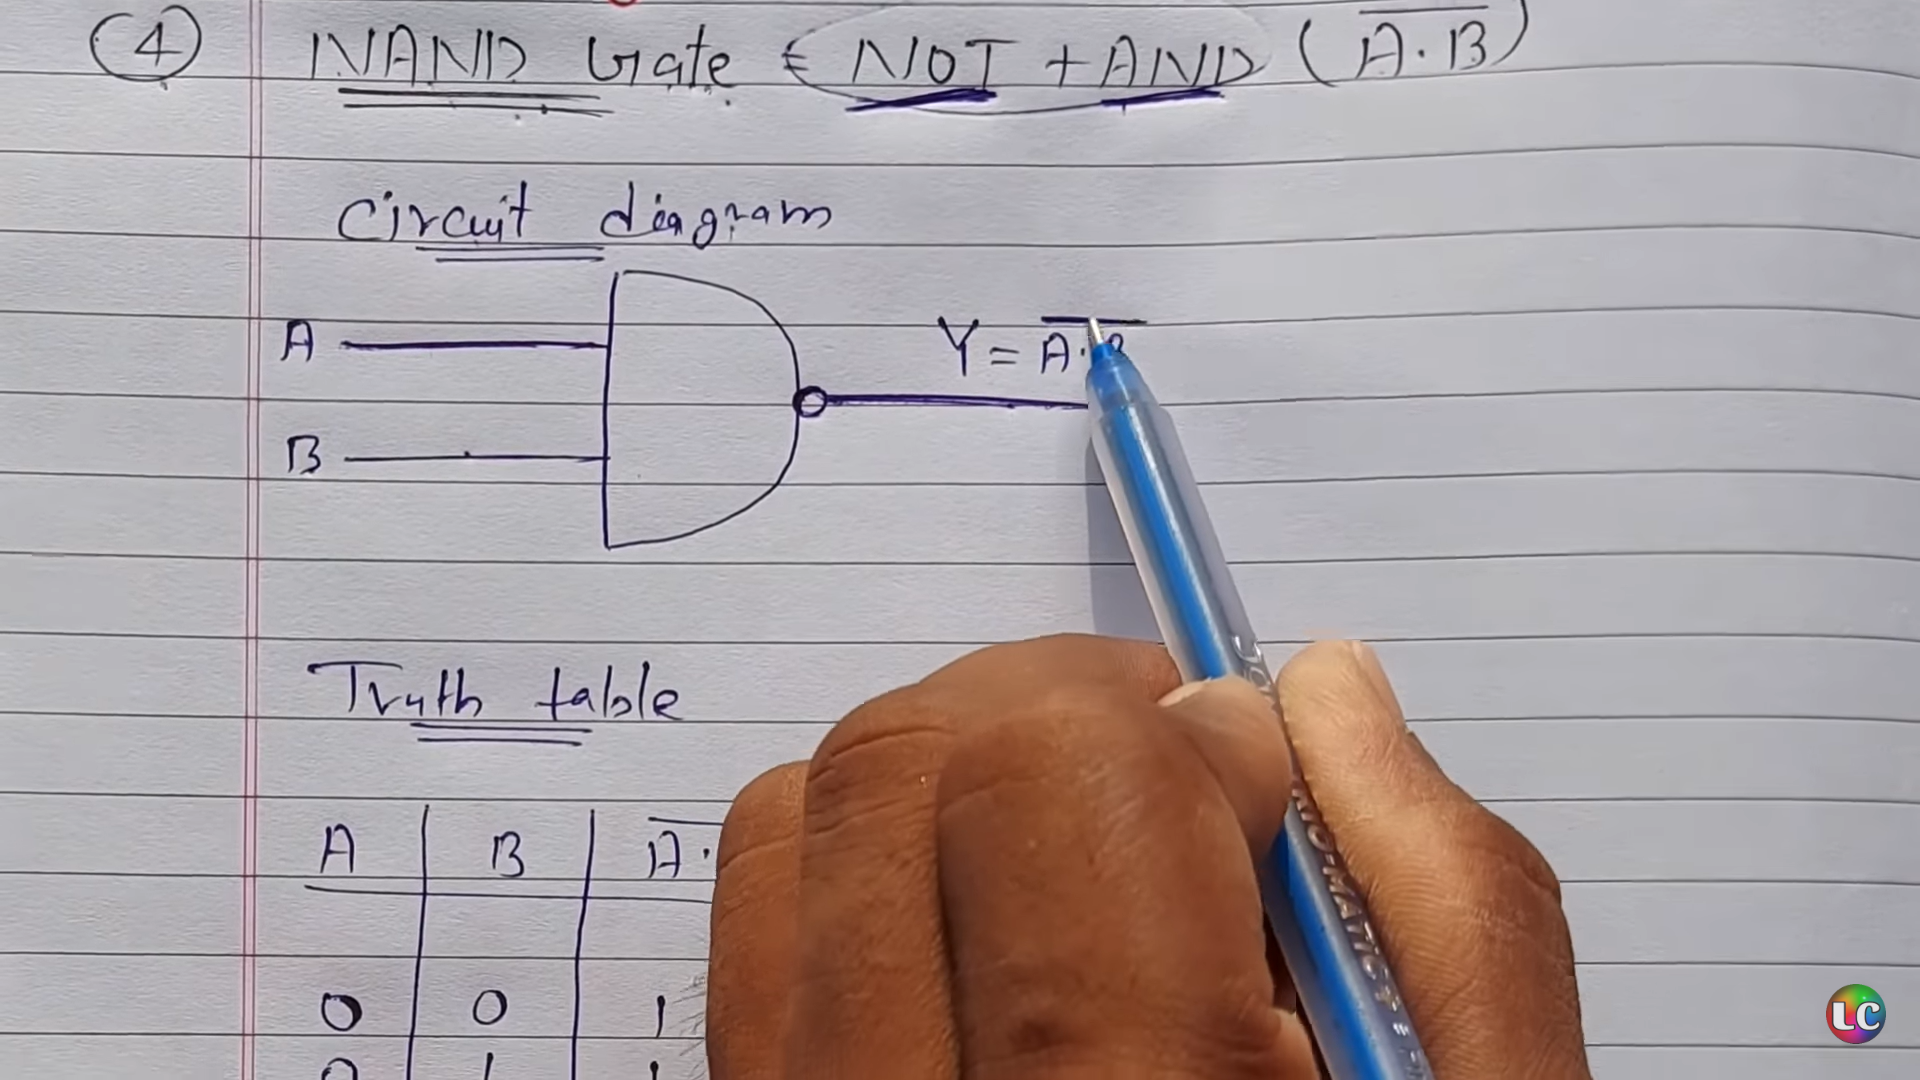 4 NAND Gate ∈ NOT + AND ( A̅.̅B̅ )
Circuit diagram
A
Y = A̅.̅B̅
B
Truth table
A B A̅.
0 0 1
0 1 1
LC